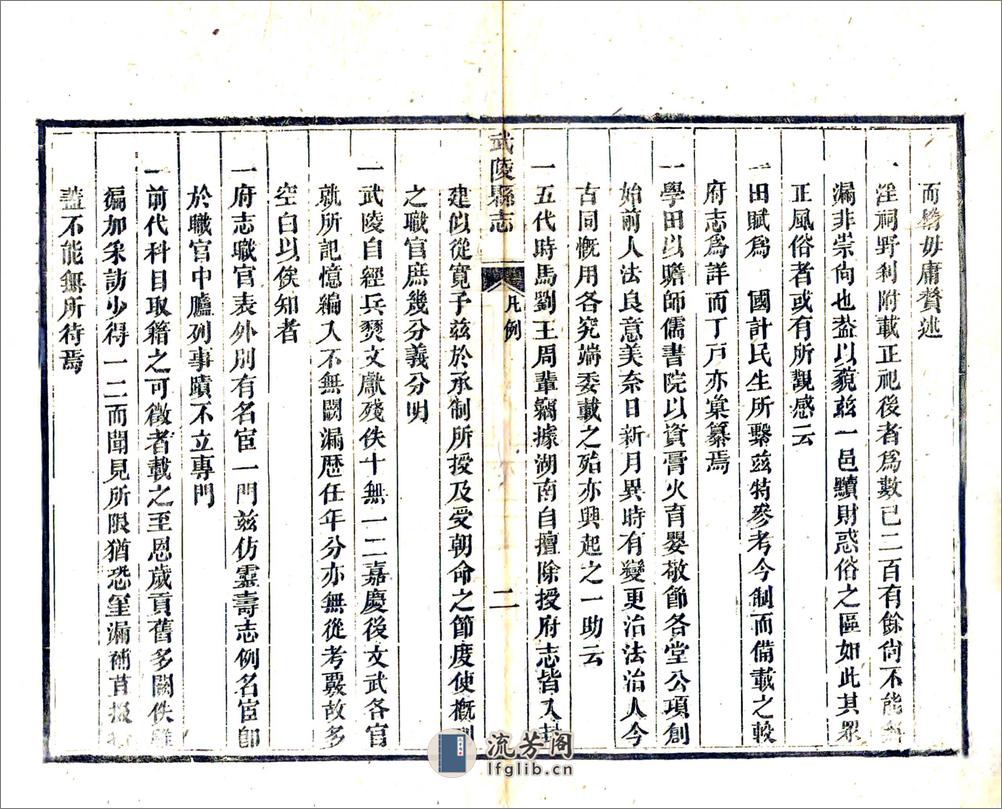 而□毋庸贅述
一淫祠野刹附載正祀後者爲數已二百有餘尙不能無
漏非崇尙也葢以藐兹一邑黷財惑俗之區如此其眾
正風俗者或有所觀感云
一田賦爲　國計民生所繫兹特參考今制而備載之較
府志爲詳而丁戸亦彙纂焉
一學田以贍師儒書院以資膏火育嬰敬節各堂公項創
始前人法良意美奈日新月異時有變更治法治人今
古同慨用各究端委載之殆亦興起之一助云
一五代時馬劉王周輩竊據湖南自擅除授府志皆入封
建似從寛予兹於承制所授及受朝命之節度使概列
之職官庶幾分義分明
武陵縣志
凡例
二
一武陵自經兵燹文獻殘佚十無一二嘉慶後文武各官
就所記憶編入不無闕漏歷任年分亦無從考覈故多
空白以俟知者
一府志職官表外別有名宦一門兹仿靈壽志例名宦卽
於職官中臚列事蹟不立專門
一前代科目取籍之可徵者載之至恩歲貢舊多闕佚雖
徧加釆訪少得一二而聞見所限猶恐罣漏補苴掇拾
葢不能無所待焉
流芳阁
lfglib.cn